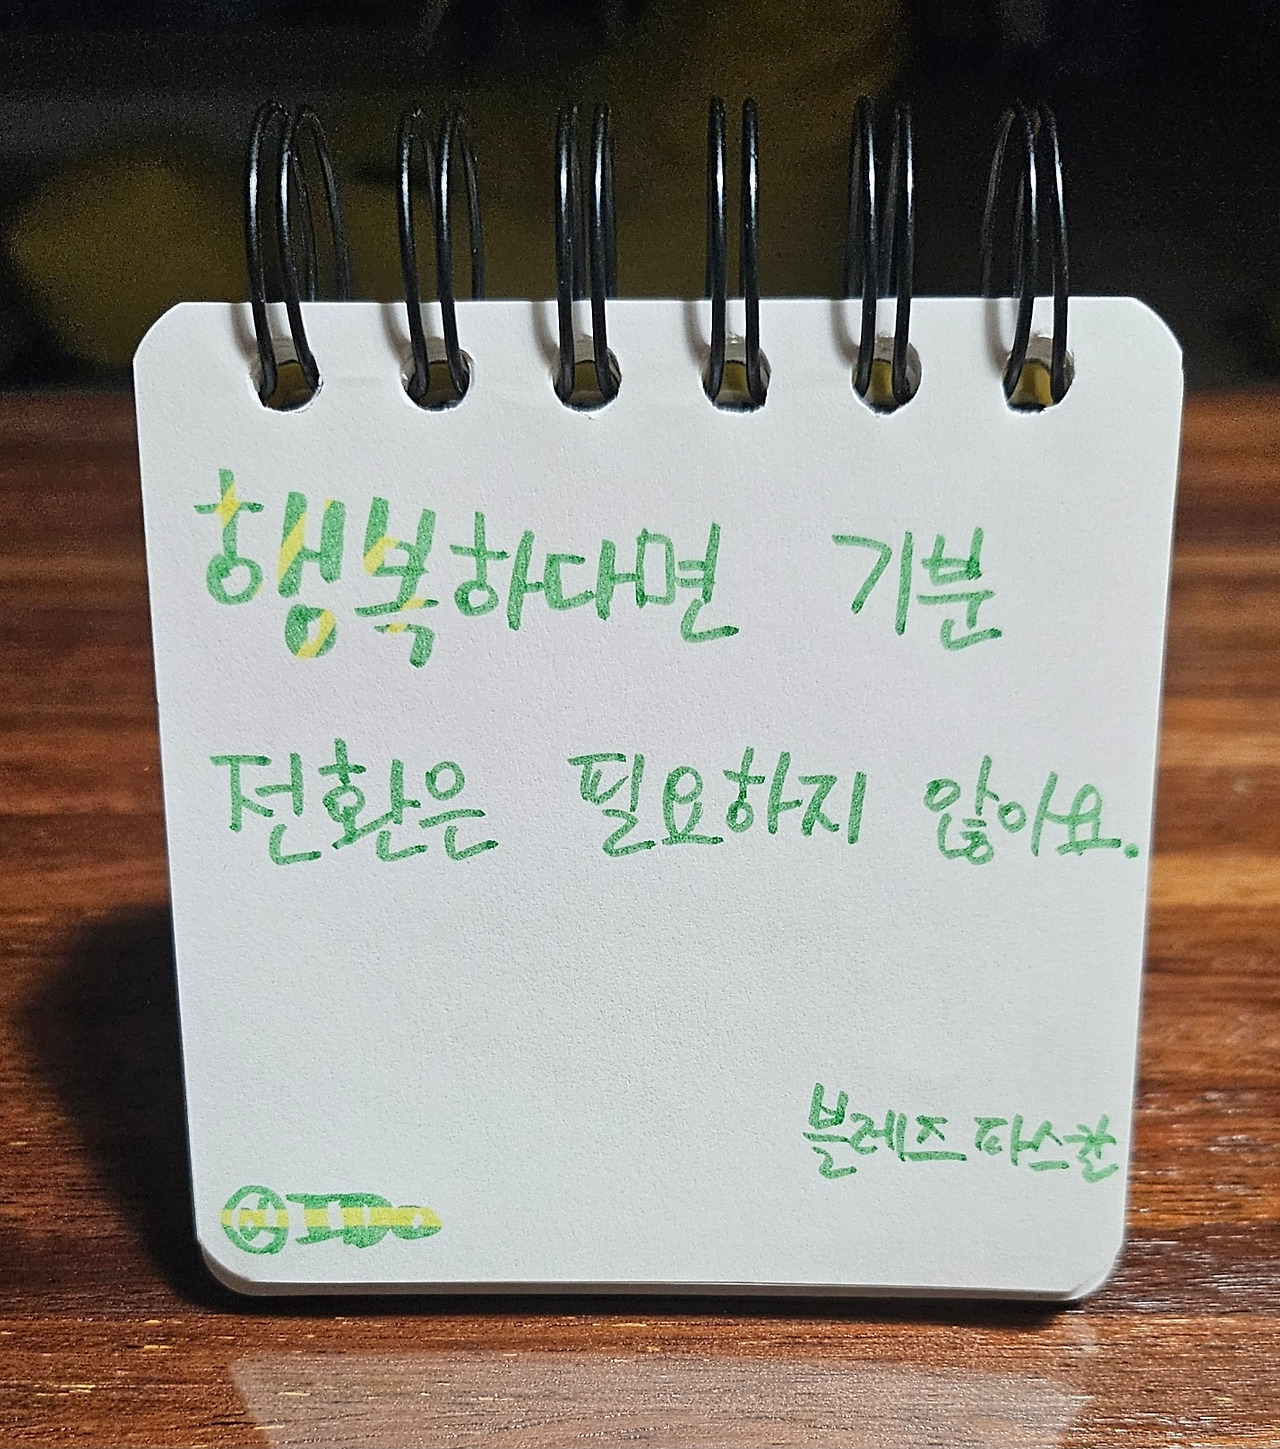 행복하다면 기분
전환은 필요하지 않아요.
블레즈 파스칼